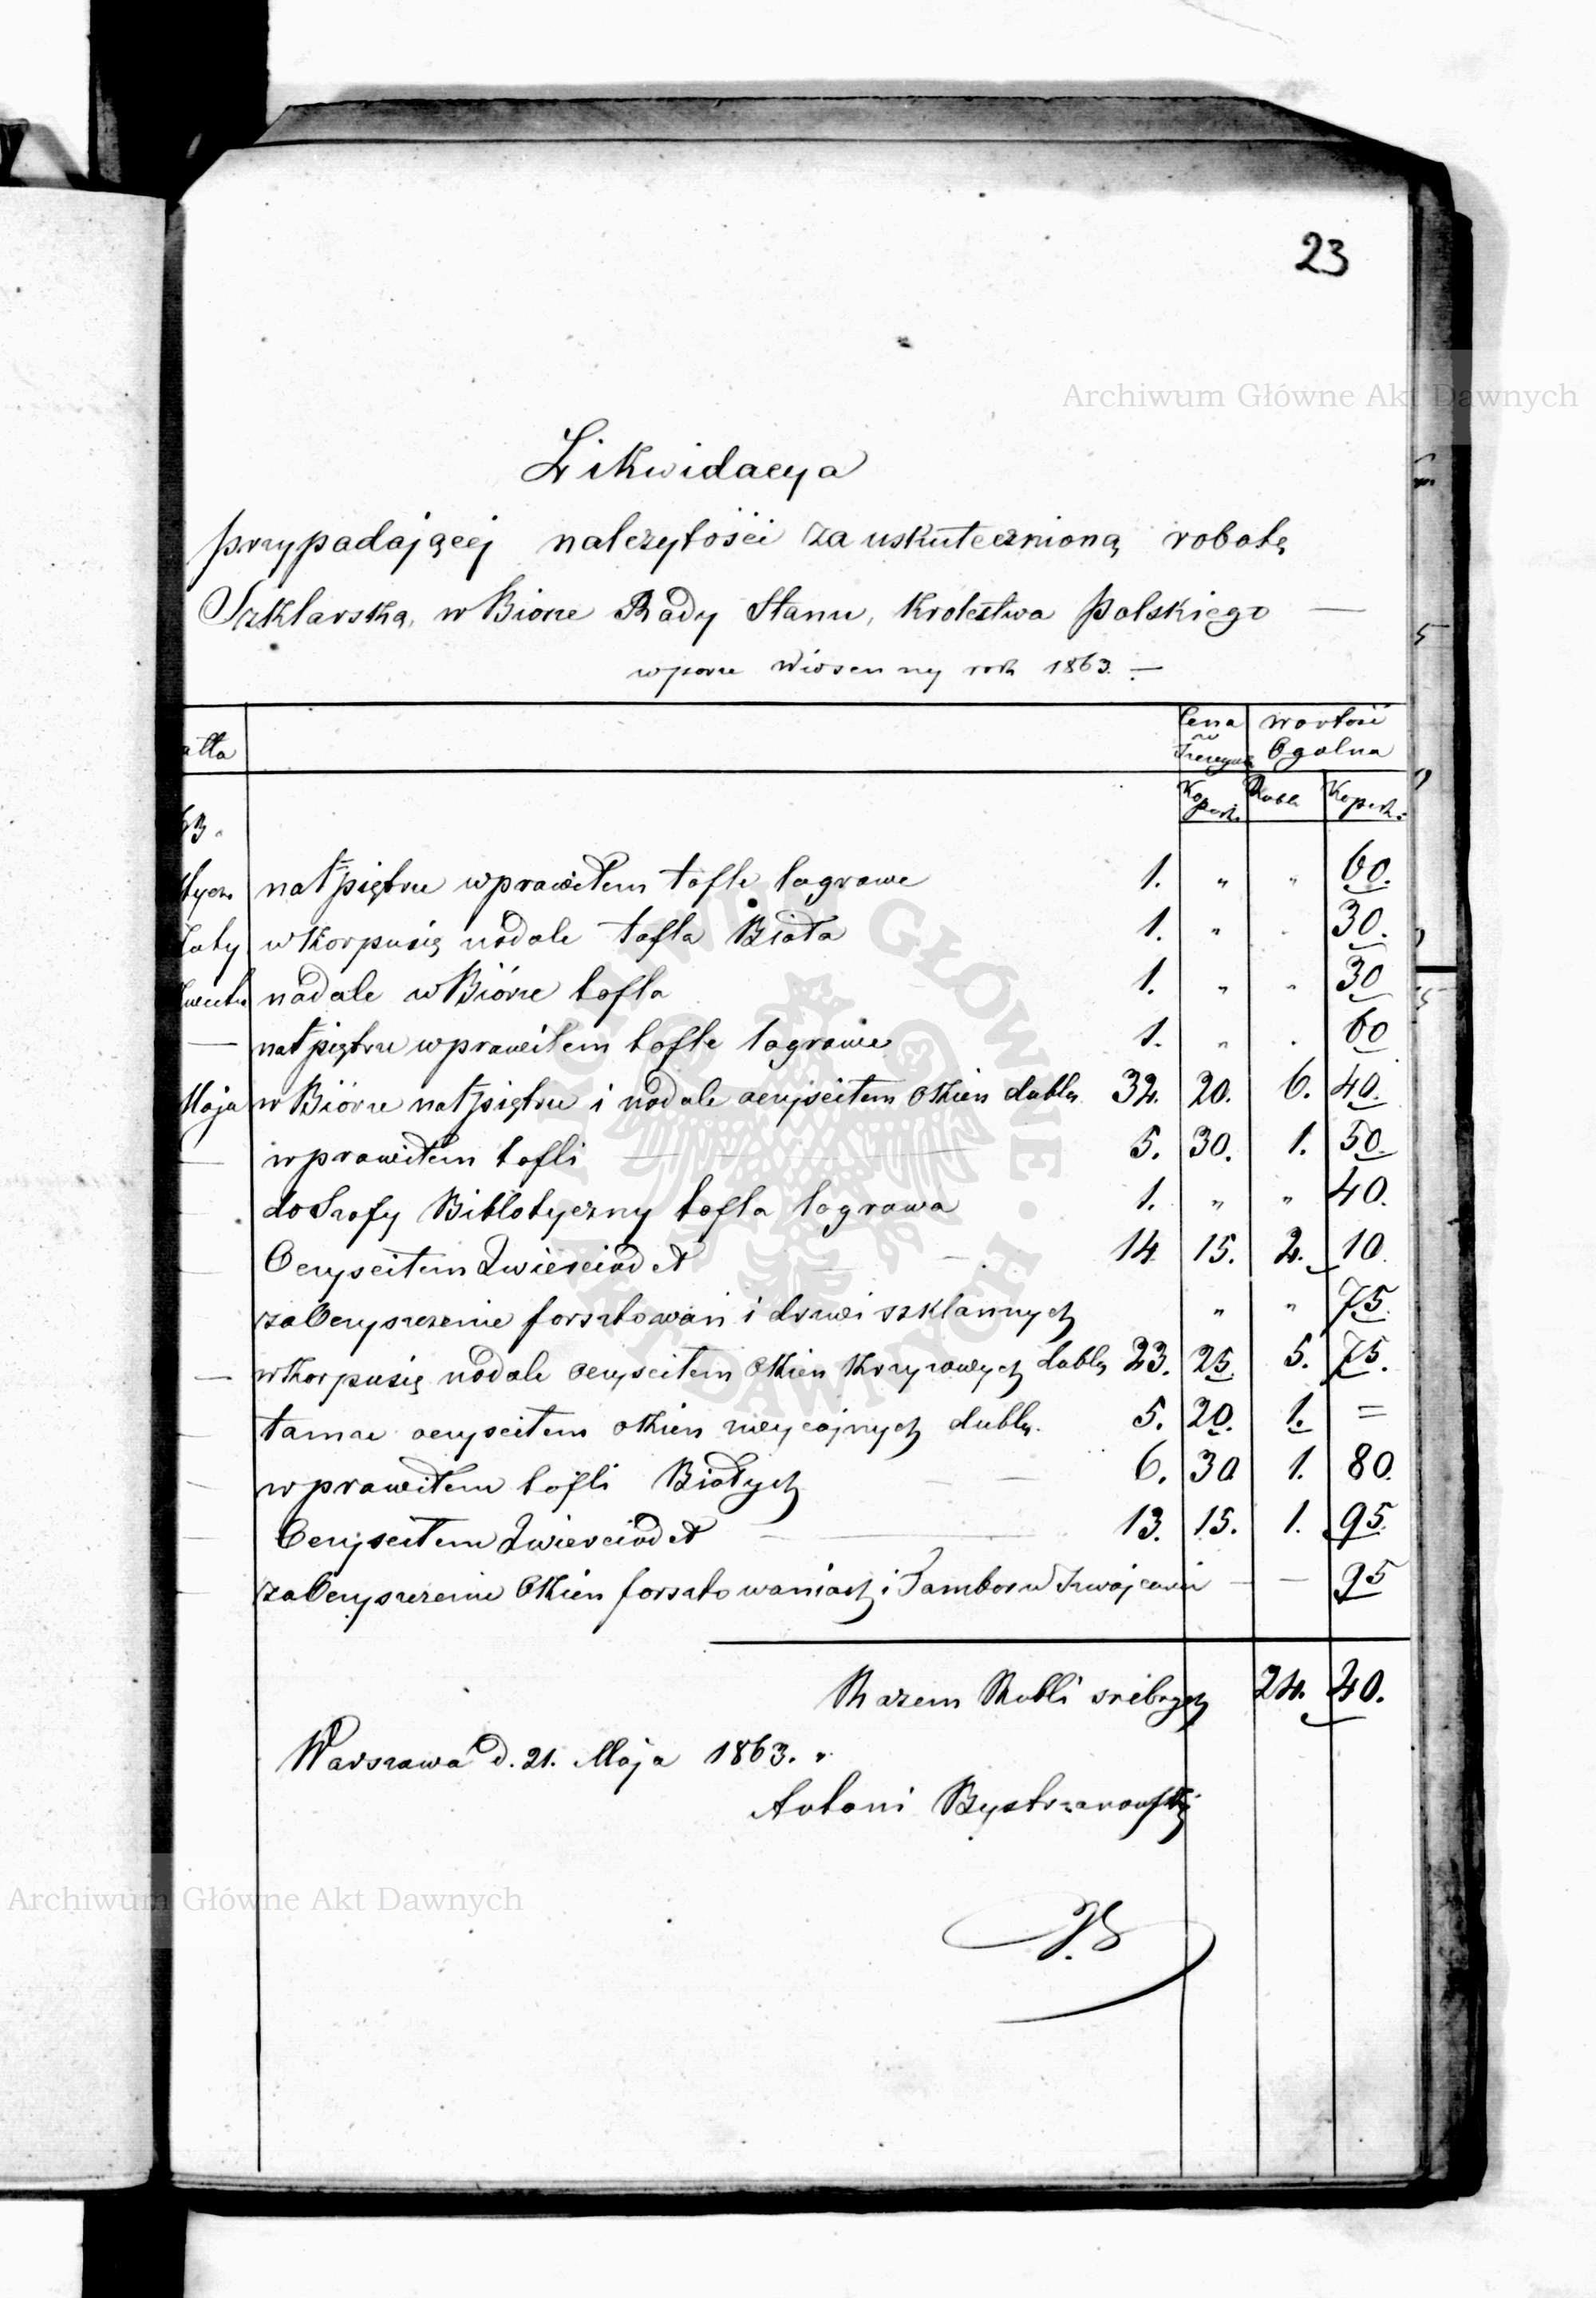 23
Archiwum Główne Akt Dawnych
Likwidacya
przypadającej należytości za uskutecznioną robotę
Szklarską, w Biorze Rady Stanu, Krolestwa Polskiego —
w porze Wiosenny rok 1863. —
atta
Cena
w
Wartość
Ogolna
Kopek. Rubli Kopek.
63.
tycz. na 1 piętrze wprawiłem tafle lagrowe 1. " " 60.
Luty w Korpusię nadole tafla Biała 1. " " 30.
Kwietn nadole w Biórze tafla 1. " " 30
— na 1 piętrze wprawiłem tafle lagrowe 1. " " 60
Maja w Biórze na 1 piętrze i nadole oczyściłem okien dubl. 32. 20. 6. 40.
— wprawiłem tafli 5. 30. 1. 50.
do Szafy Biblotyczny tafla lagrowa 1. " " 40.
— Oczyściłem Zwierciadeł 14 15. 2. 10.
za Oczyszczenie forsztowań i drzwi szklannych " " 75.
— w Korpusię nadole oczyściłem okien Krzyzowych dubl. 23. 25. 5. 75.
— tamże oczyściłem okien zwyczajnych dubl. 5. 20. 1. =
— wprawiłem tafli Białych 6. 30 1. 80.
— Oczyściłem Zwierciadeł 13. 15. 1. 95.
za Oczyszczenie Okien forsztowaniach i Tambor w — — 95
Razem Rubli srebrych 24. 40.
Warszawa d. 21. Maja 1863. "
Antoni Bystrzanowski
Archiwum Główne Akt Dawnych
ARCHIWUM GŁÓWNE AKT DAWNYCH